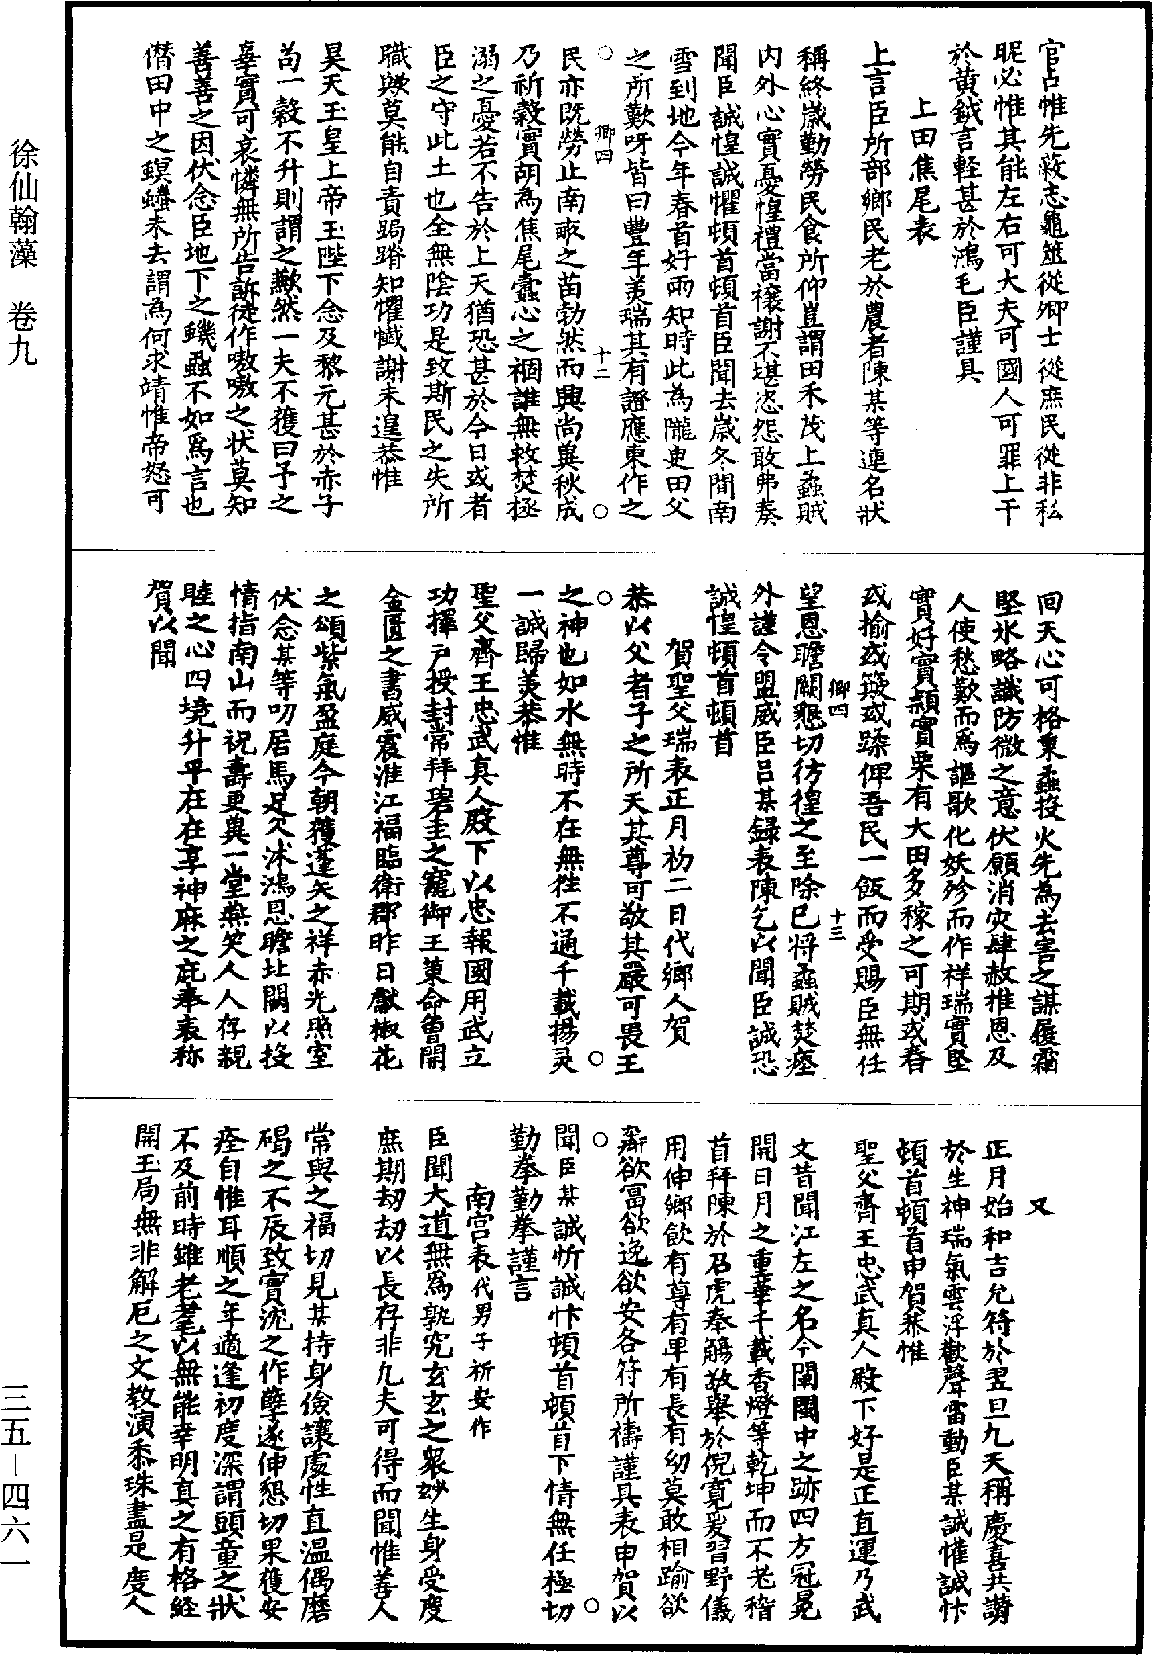 官占惟先蔽志龜筮從卿士從庶民從非私
昵必惟其能左右可大夫可國人可罪上干
於黄鉞言輕甚於鴻毛臣謹具
上田焦尾表
上言臣所部鄉民老於農者陳某等連名狀
稱終歲勤勞民食所仰豈謂田禾茂上蟊賊
内外心實憂惶禮當禳謝不堪恣怨敢弗奏
聞臣誠惶誠懼頓首頓首臣聞去歲冬間南
雪到地今年春首好雨知時此為隴史田父
之所歎呀皆曰豐年美瑞其有證應東作之
卿四
十二
民亦既勞止南畝之苗勃然而興尚異秋成
乃祈穀實胡為焦尾蠹心之禍誰無救焚極
溺之憂若不告於上天猶恐甚於今日或者
臣之守此土也全無陰功是致斯民之失所
職歟莫能自責跼蹐知懼懺謝未遑恭惟
昊天玉皇上帝玉陛下念及黎元甚於赤子
苟一穀不升則謂之歉然一夫不獲曰予之
辜實可哀憐無所告訴徒作嗷嗷之状莫知
善善之因伏念臣地下之蟣蝨不如為言也
僣田中之螟螣未去謂為何求靖惟帝怒可
回天心可格秉蟊投火先為去害之謀履霜
堅氷略識防微之意伏願消灾肆赦推恩及
人使愁歎而為謳歌化妖殄而作祥瑞實堅
實好實穎實栗有大田多稼之可期或舂
或揄或簸或蹂俾吾民一飯而受賜臣無任
卿四
十三
望恩瞻闕懇切彷徨之至除已將蟊賊焚瘞
外謹令盟威臣呂某録表陳乞以聞臣誠恐
誠惶頓首頓首
賀聖父瑞表正月初二日代鄉人賀
恭以父者子之所天其尊可敬其嚴可畏王
之神也如水無時不在無徃不通千載揚灵
一誠歸美恭惟
聖父齊王忠武真人殿下以忠報國用武立
功擇戸授封常拜碧圭之寵御王菓命魯開
金匱之書威震淮江福臨衛郡昨日獻椒花
之頌紫氣盈庭今朝獲蓬矢之祥赤光照室
伏念某等叨居馬足久沐鴻恩瞻址闕以投
情指南山而祝壽更與一堂燕笑人人存親
睦之心四境升平在在享神庥之庇奉表称
賀以聞
又
正月始和吉允符於翌旦九天稱慶喜共讃
於生神瑞氣雲浮歡聲雷動臣某誠懽誠忭
頓首頓首申賀恭惟
聖父齊王忠武真人殿下好是正直運乃武
文昔聞江左之名今闡閩中之跡四方冠冕
開日月之重華千載香燈等乾坤而不老稽
首拜陳於召虎奉觴敬舉於倪寬爰習野儀
用伸鄉飲有尊有卑有長有幼莫敢相踰欲
壽欲富欲逸欲安各符所禱謹具表申賀以
聞臣某誠忻誠忭頓首頓首下情無任極切
勤拳勤拳謹言
南宮表代男子祈安作
臣聞大道無為孰究玄玄之衆妙生身受度
庶期刼刼以長存非凡夫可得而聞惟善人
常與之福切見某持身儉讓處性直温偶磨
碣之不辰致寳沈之作孽遂伸懇切果獲安
痊自惟耳順之年適逢初度深謂頭童之狀
不及前時雖老耄以無能幸明真之有格経
開玉局無非解厄之文教演黍珠盡是度人
徐仙翰藻　卷九
三五－四六一